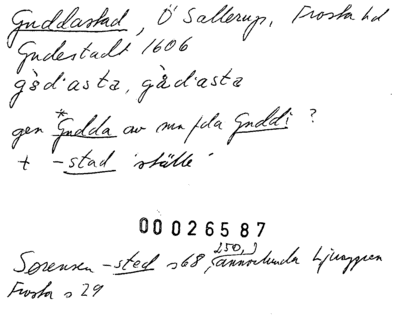 Guddastad, Ö Sallerup, Frosta hd
Gudestadt 1606
gen *Gudda av mn fda Guddi ?
+ -stad 'ställe'
00026587
250,
Sørensen -sted s 68, annorlunda Ljunggren
Frosta s 29